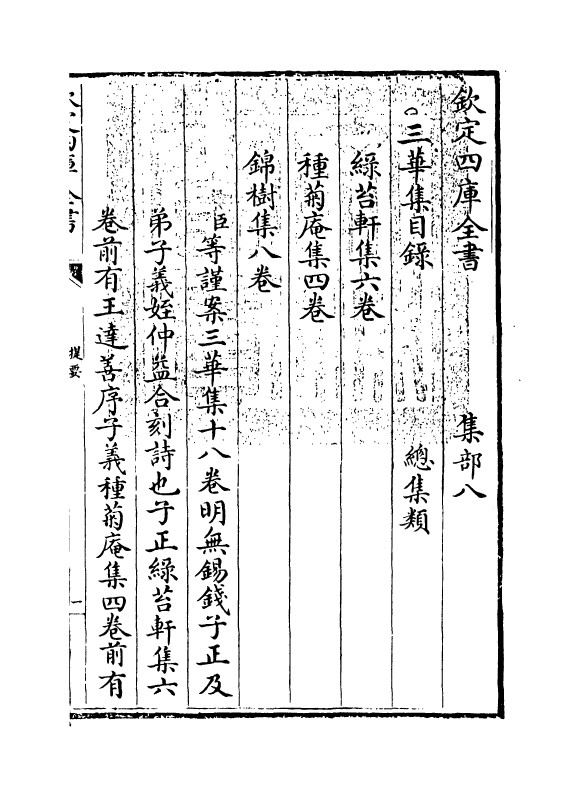 欽定四庫全書　集部八
三華集目錄　總集類
綠苔軒集六卷
種菊庵集四卷
錦樹集八卷
臣等謹案三華集十八卷明無錫錢子正及
弟子義姪仲益合刻詩也子正綠苔軒集六
卷前有王達善序子義種菊庵集四卷前有
提要
一